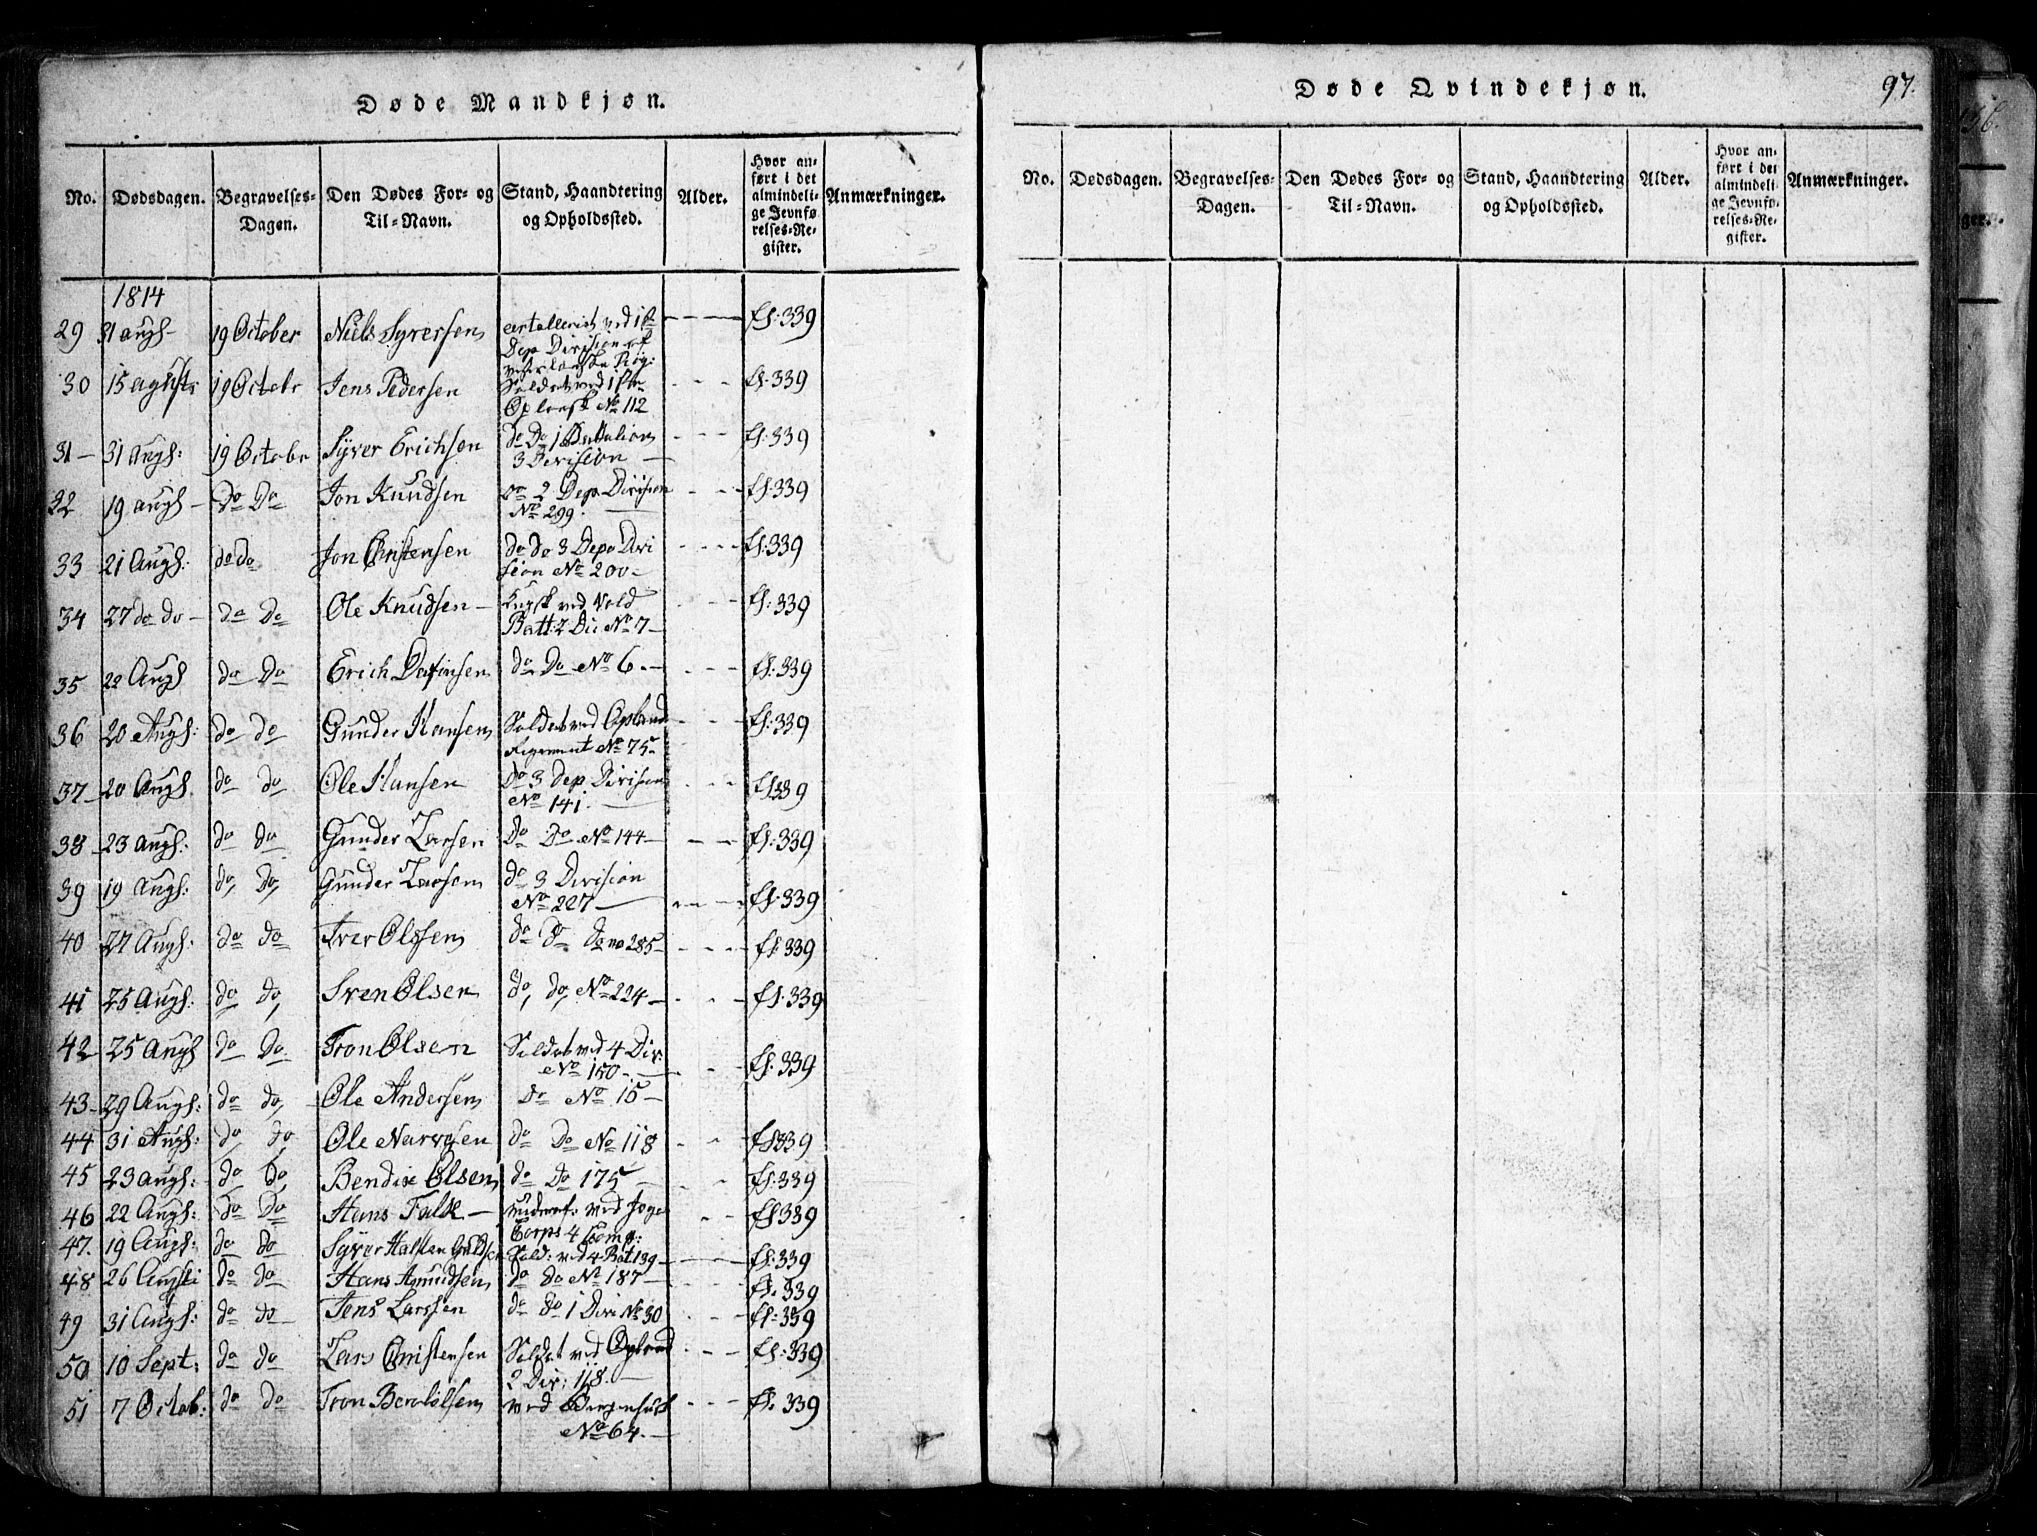 Døde Mandkjøn.
No. Dødsdagen. Begravelses-Dagen. Den Dødes For- og Til-Navn. Stand, Haandtering og Opholdssted. Alder. Hvor anført i det almindelige Jevnførelses-Register. Anmærkninger.
1814
29 31 augs- 19 October Niels Syversen ved 1ste --- fl: 339
Dep Division
30 15 agusts 19 Octobr Jens Pedersen Soldat ved 1ste --- fl: 339
Oplansk No 112
31- 31 Augs: 19 Octobr Syver Erichsen do Do 1 Battalions --- fl: 339
3 Devision -
32 19 augs- Do Do Jon Knudsen Do 2 Dep Division --- fl: 339
No 299.
33 21 Augs: do do Jon Christensen do do 3 Depo Divi --- fl: 339
sion No 200-
34 27 do do- Do Do Ole Knudsen- ved Vold --- fl: 339
Batt: 2 Div No 7-
35 22 Augs do Do Erich Dafinsen do Do No 6.- --- fl: 339
36 20 Augs: do do Gunder Hansen Soldat ved Opland --- fl: 339
Regement No 75-
37- 20 Augs. do do Ole Hansen Do 3 Dep Division --- fl 339
No 141.
38- 23 augs: do do Gunder Larsen Do Do No 144- --- fl: 339
39 19 Augs: do, Do, Gunder Larsen do 3 Division
No 227 - --- fl. 339
40 27 Augs: do do Iver Olssen do do do no 285- --- fl. 339
41 25 Augs: do do, Sven Olsen do, do, No 224- --- fl. 339
42 25 Augs do Do Tron Olsen Soldat ved 4 Div:
No 150- - fl: 339
43- 29 Augs: do do, Ole Andersen do No 15-
44 31 Augs: do, do Ole Narvesen do Do No 118 -- fl 339
45 23 augs: do do, Bendix Olsen do Do 175- -- fl: 339
46 22 Augs: do Do Hans Falk- ved Jæge -- fl 339
Corps 4 Comp:
47. 19 Augs: do do Syver Halsten Guldsen Sold: ved 4 Bat 139- fl: 339
48 26 Augsti do do Hans Amundsen do do No 187- fl. 339
49 31 Augs: do do- Jens Larssen do do 1 Divi No 30 --- fl: 339
50 10 Sept: do do Lars Christensen Soldat ved Opland --- fl: 339
2 Div: 118.-
51 7 Octob: do do Tron Berdolsen ved Bergenhus --- fl. 339
No 64.-
Døde Qvindekjøn. 97.
No. Dødsdagen. Begravelses-Dagen. Den Dødes For- og Til-Navn. Stand, Haandtering og Opholdssted. Alder. Hvor anført i det almindelige Jevnførelses-Register. Anmærkninger.